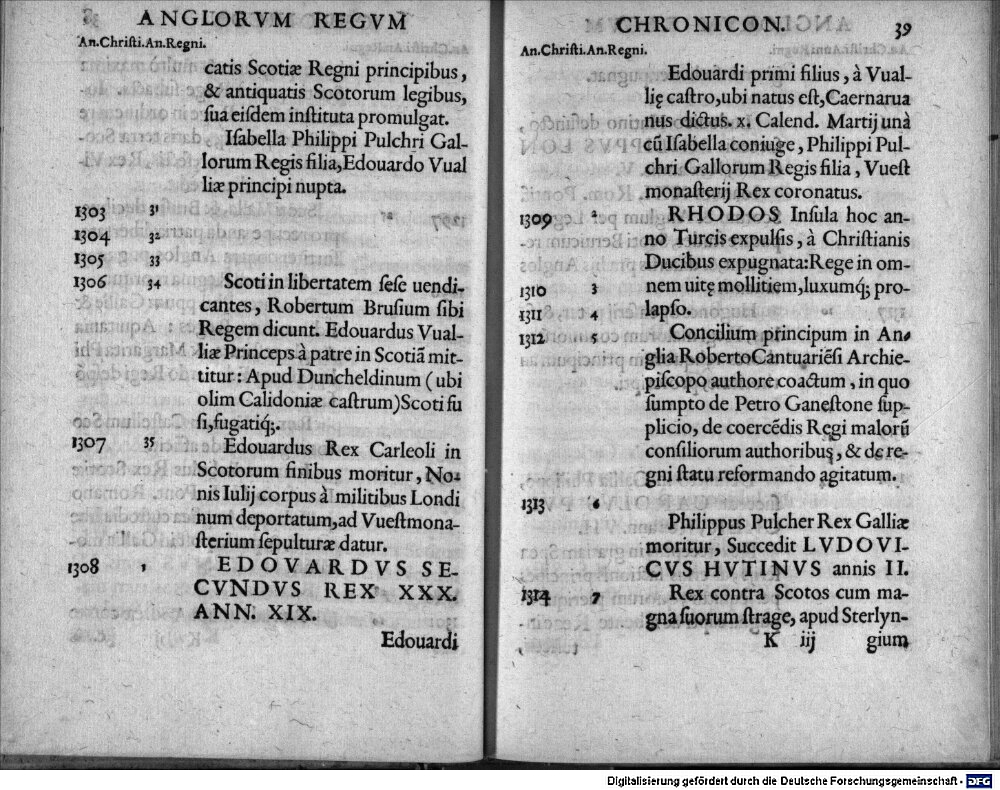 ANGLORVM REGVM
An.Christi.An.Regni.
catis Scotiæ Regni principibus,
& antiquatis Scotorum legibus,
sua eisdem instituta promulgat.
Isabella Philippi Pulchri Gal-
lorum Regis filia, Edouardo Vual
liæ principi nupta.
1303 31
1304 32
1305 33
1306 34 Scoti in libertatem sese uendi-
cantes, Robertum Brusium sibi
Regem dicunt. Edouardus Vual-
liæ Princeps à patre in Scotiã mit-
titur: Apud Duncheldinum (ubi
olim Calidoniæ castrum) Scoti fu
si, fugatiq́;.
1307 35 Edouardus Rex Carleoli in
Scotorum finibus moritur, No-
nis Iulij corpus à militibus Londi
num deportatum, ad Vuestmona-
sterium sepulturæ datur.
1308 1 EDOVARDVS SE-
CVNDVS REX XXX.
ANN. XIX.
Edouardi
CHRONICON. 39
An.Christi.An.Regni.
Edouardi primi filius, à Vual-
lię castro, ubi natus est, Caernarua
nus dictus. x. Calend. Martij unà
cũ Isabella coniuge, Philippi Pul-
chri Gallorum Regis filia, Vuest
monasterij Rex coronatus.
1309 2 RHODOS Insula hoc an-
no Turcis expulsis, à Christianis
Ducibus expugnata: Rege in om-
1310 3 nem uitę mollitiem, luxumq́; pro-
1311 4 lapso.
1312 5 Concilium principum in An-
glia Roberto Cantuariẽsi Archie-
piscopo authore coactum, in quo
sumpto de Petro Ganestone sup-
plicio, de coercẽdis Regi malorũ
consiliorum authoribus, & de re-
gni statu reformando agitatum.
1313 6
Philippus Pulcher Rex Galliæ
moritur, Succedit LVDOVI-
CVS HVTINVS annis II.
1314 7 Rex contra Scotos cum ma-
gna suorum strage, apud Sterlyn-
K iij gium
Digitalisierung gefördert durch die Deutsche Forschungsgemeinschaft - DFG